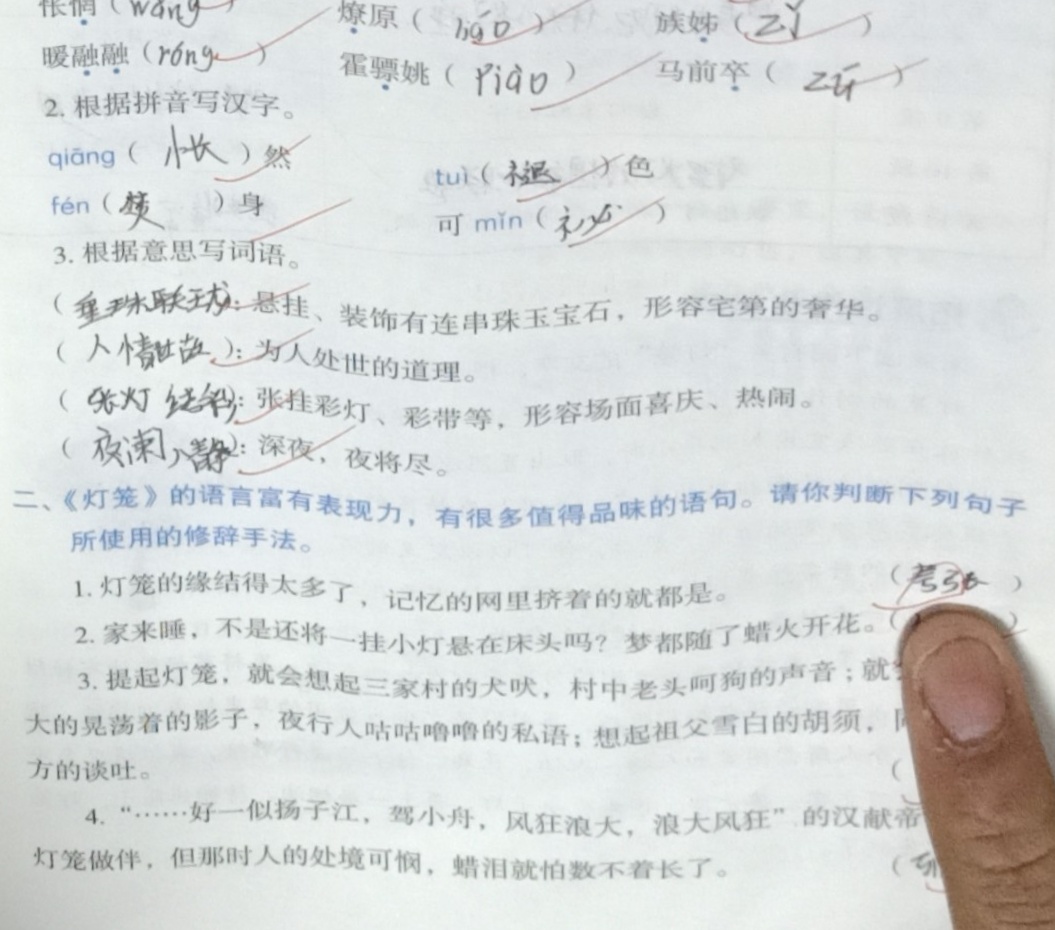 怅惘（wǎng） 燎原（liáo） 族姊（zǐ）
暖融融（róng） 霍骠姚（piào） 马前卒（zú）
2. 根据拼音写汉字。
qiāng（怅）然 tuì（褪）色
fén（焚）身 可 mǐn（）
3. 根据意思写词语。
（垂珠联珑）：悬挂、装饰有连串珠玉宝石，形容宅第的奢华。
（人情世故）：为人处世的道理。
（张灯结彩）：张挂彩灯、彩带等，形容场面喜庆、热闹。
（夜阑人静）：深夜，夜将尽。
二、《灯笼》的语言富有表现力，有很多值得品味的语句。请你判断下列句子
所使用的修辞手法。
1. 灯笼的缘结得太多了，记忆的网里挤着的就都是。（）
2. 家来睡，不是还将一挂小灯悬在床头吗？梦都随了蜡火开花。（）
3. 提起灯笼，就会想起三家村的犬吠，村中老头呵狗的声音；就
大的晃荡着的影子，夜行人咕咕噜噜的私语；想起祖父雪白的胡须，
方的谈吐。（
4. “……好一似扬子江，驾小舟，风狂浪大，浪大风狂”的汉献帝
灯笼做伴，但那时人的处境可悯，蜡泪就怕数不着长了。（